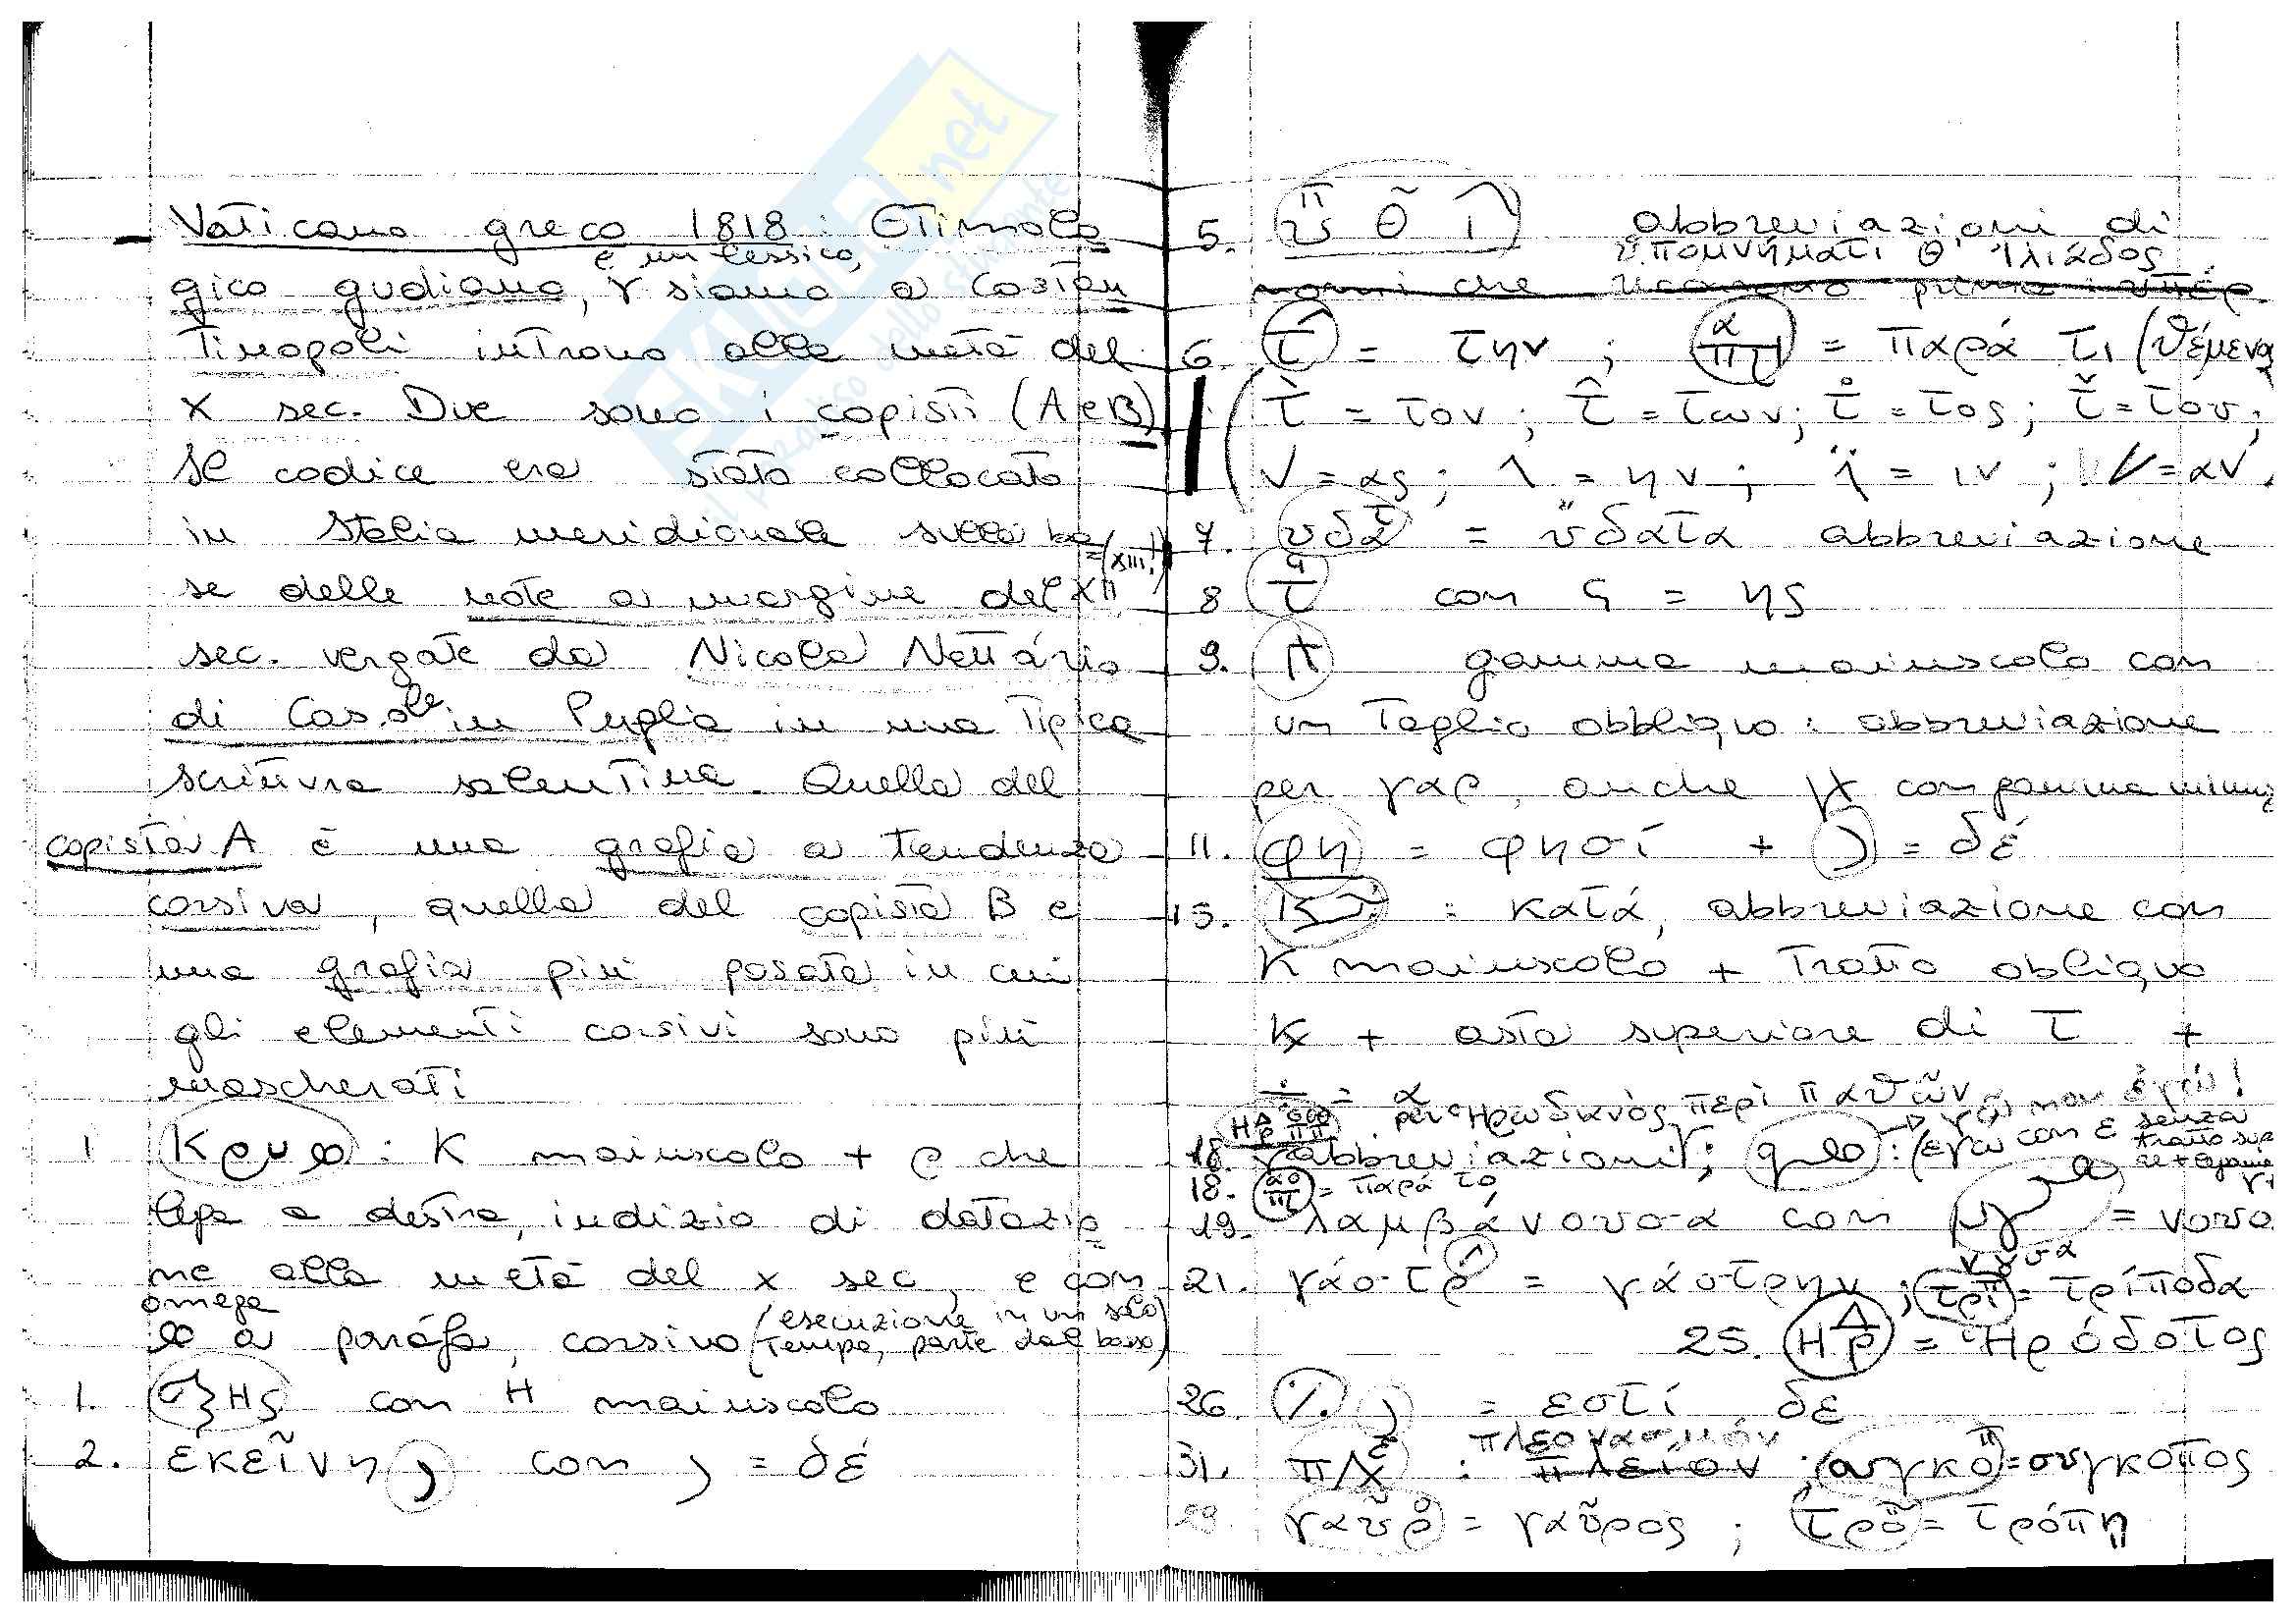 Vaticano greco 1818: Etimolo
è un lessico,
gico gudiano, siamo a Costan
tinopoli intorno alla metà del
X sec. Due sono i copisti (A e B)
Il codice era stato collocato
in Italia meridionale sulla ba
=(XIII!)
se delle note a margine del XII
sec. vergate da Nicola Nettário
di Casole in Puglia in una tipica
scrittura salentina. Quella del
copista A è una grafia a tendenza
corsiva, quella del copista B e
una grafia più posata in cui
gli elementi corsivi sono più
mascherati
1 K maiuscolo + ρ che
lega a destra, indizio di datazio
ne alla metà del x sec, e con
omega
ω a paráfa, corsivo (esecuzione in un solo
tempo, parte dal basso)
1. con H maiuscolo
2. εκεῖνη, con ) = δέ
5. abbreviazioni di
ὑπομνήματι θ' Ἰλιάδος
6. = την ; = παρά τι (θέμενα
= τον ; = των ; = τος ; = του ;
= ας ; = ην ; = ιν ; = αν.
7. υδατ = ϋδατα abbreviazione
8 con ς = ης
9. gamma maiuscolo con
un taglio obbliquo: abbreviazione
per γαρ, anche con gamma minus
11. φη = φησί + ) = δέ
15. : κατά, abbreviazione con
K maiuscolo + tratto obliquo
K + asta superiore di τ +
÷ = α
per Ἡρωδιανὸς περὶ παθῶν
18. abbreviazioni ; : (εγω con ε senza
tratto sup
18. = παρά το
19. λαμβάνουσα con = νουσα
21. γάστρ = γάστρην ; τρι = τρίποδα
25. Ηρ = Ἡρόδοτος
26. ) = εστί δε
πλεονασμόν
31. : πλεῖον ; συγκο = συγκοπος
29. γαυρ = γαῦρος ; τρο = τρόπη